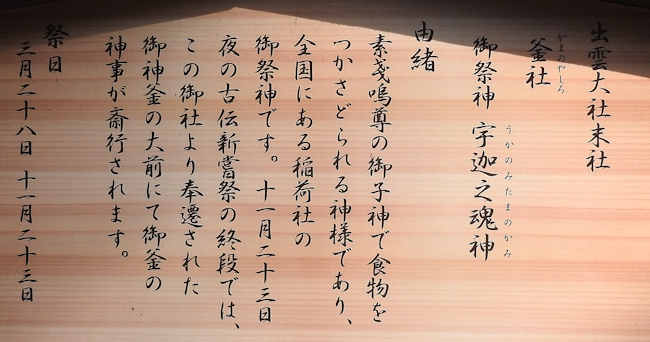 出雲大社末社
釜社
かまのやしろ
御祭神 宇迦之魂神
うかのみたまのかみ
由緒
素戔嗚尊の御子神で食物を
つかさどられる神様であり、
全国にある稲荷社の
御祭神です。十一月二十三日
夜の古伝新嘗祭の終段では、
この御社より奉遷された
御神釜の大前にて御釜の
神事が斎行されます。
祭日
三月二十八日 十一月二十三日